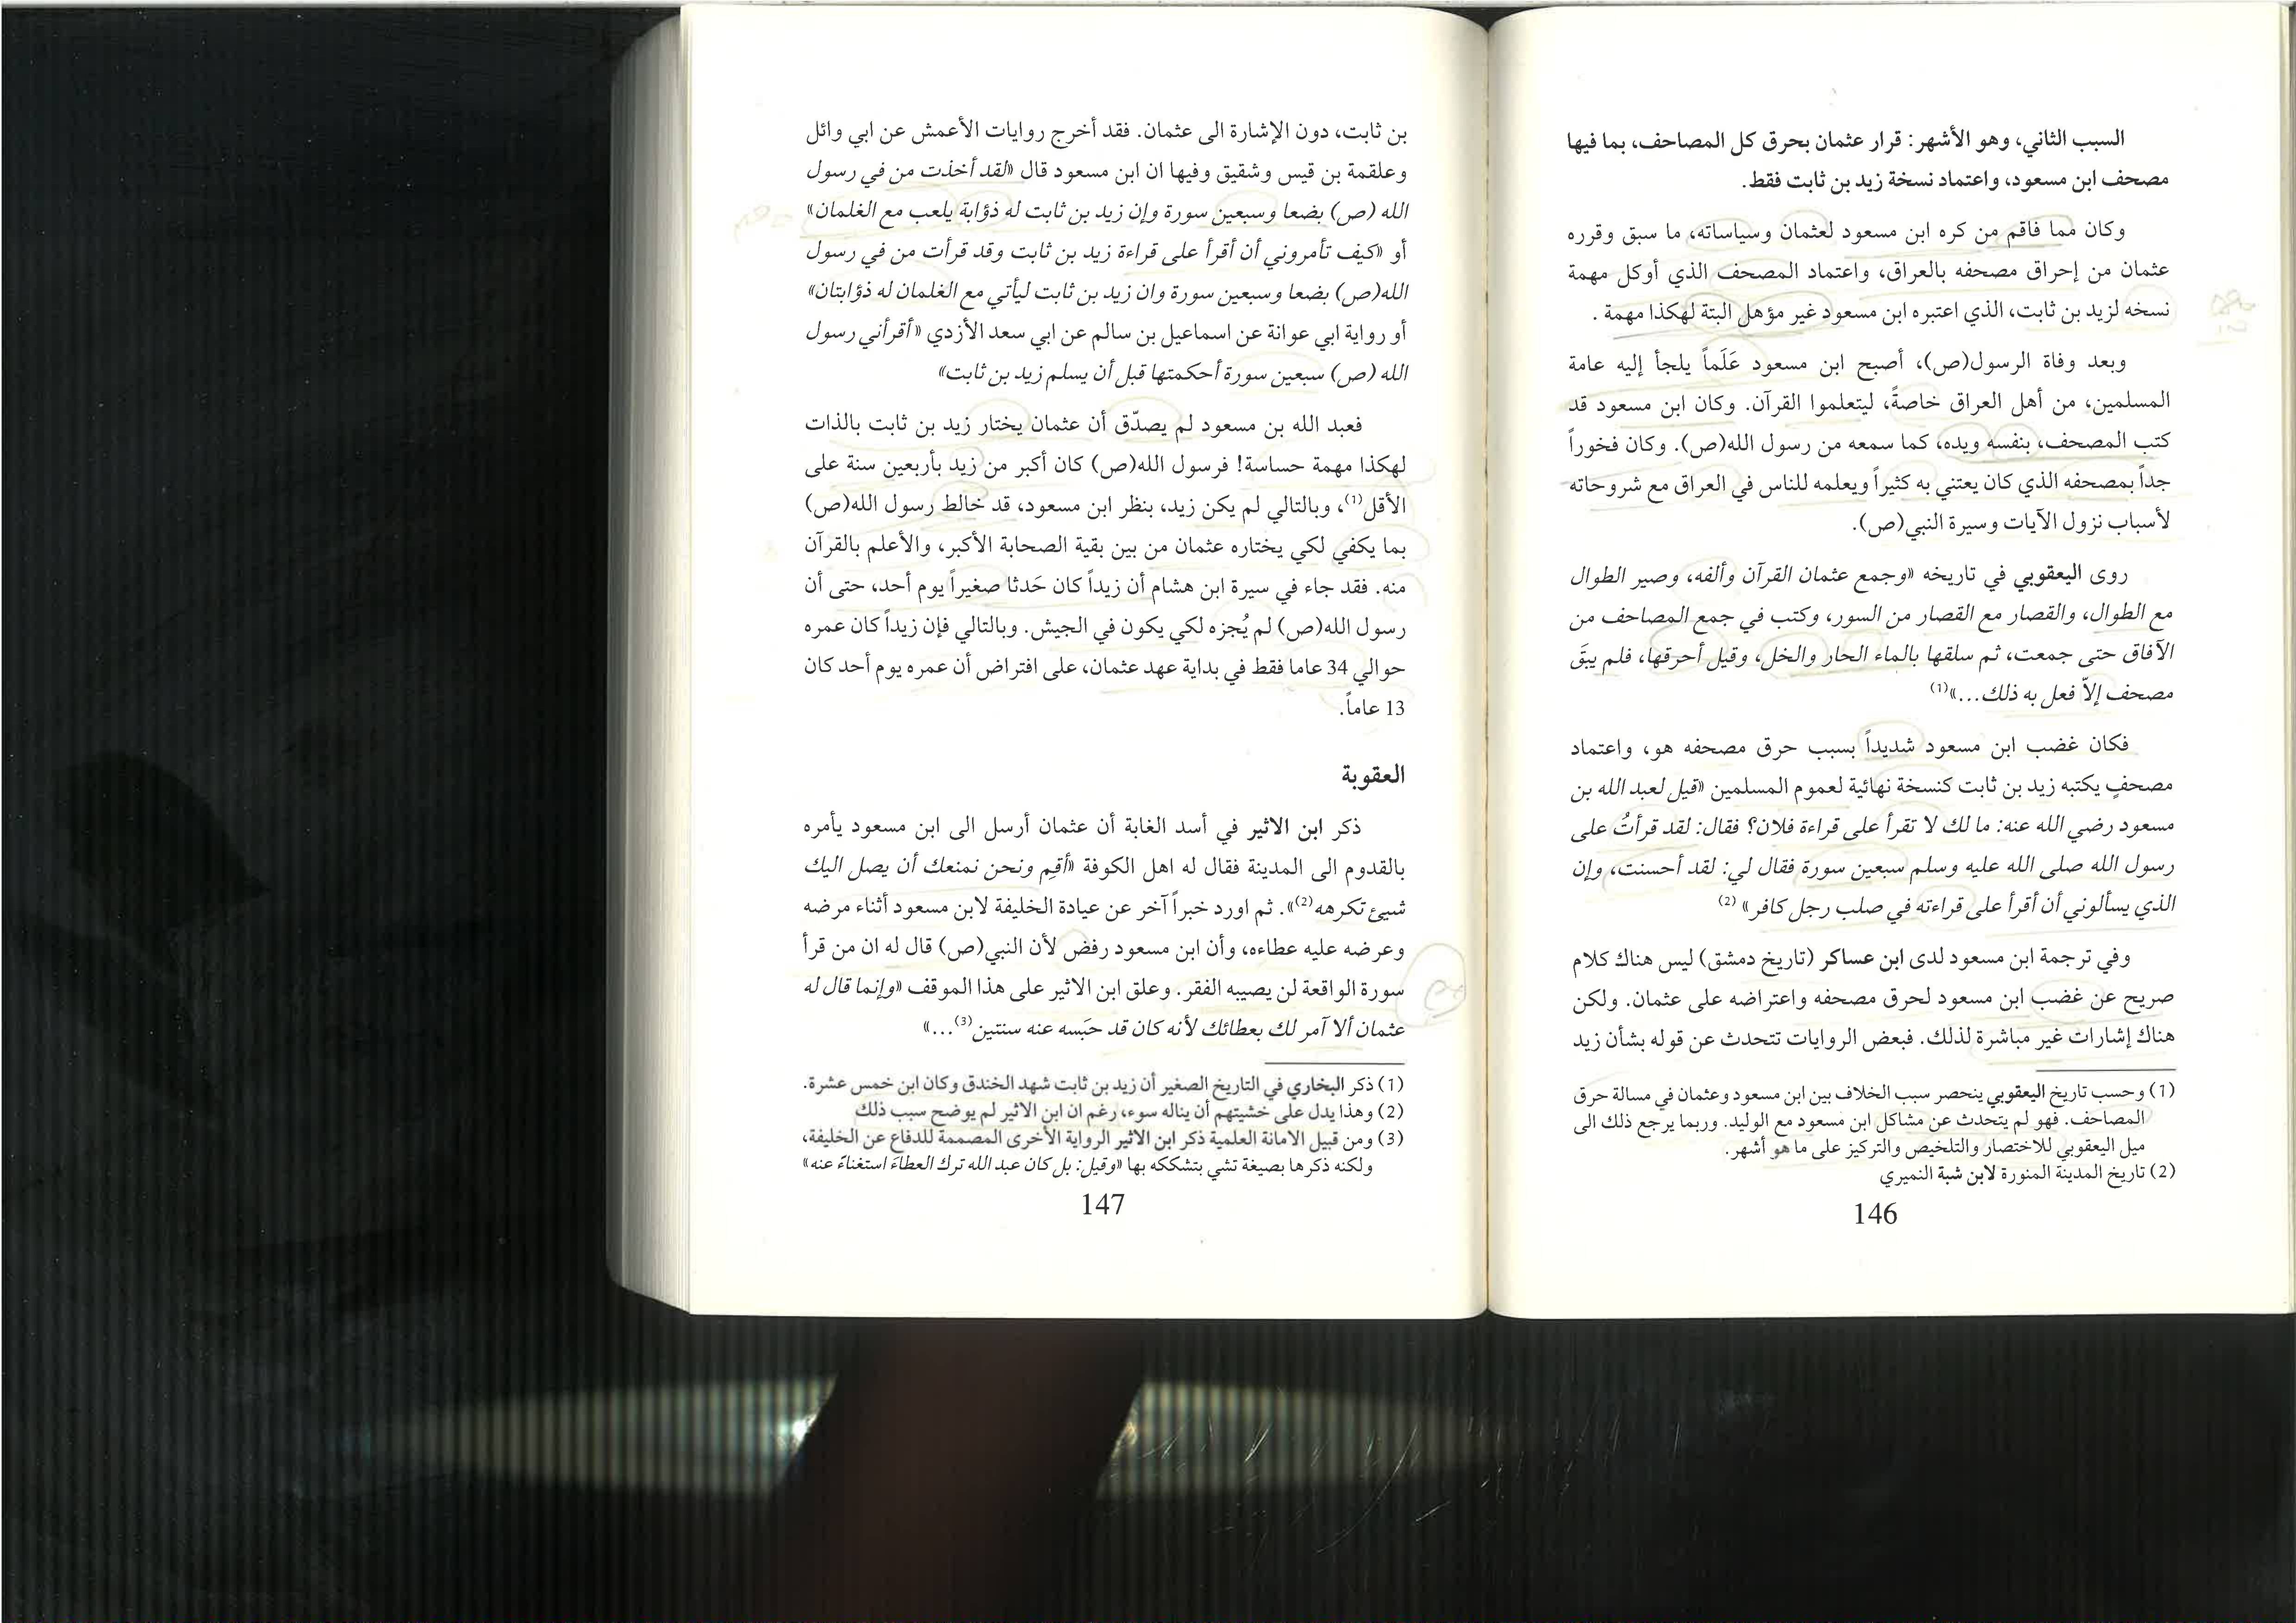 السبب الثاني، وهو الأشهر: قرار عثمان بحرق كل المصاحف، بما فيها
مصحف ابن مسعود، واعتماد نسخة زيد بن ثابت فقط.
وكان مما فاقم من كره ابن مسعود لعثمان وسياساته، ما سبق وقرره
عثمان من إحراق مصحفه بالعراق، واعتماد المصحف الذي أوكل مهمة
نسخه لزيد بن ثابت، الذي اعتبره ابن مسعود غير مؤهل البتة لهكذا مهمة .
وبعد وفاة الرسول(ص)، أصبح ابن مسعود عَلَماً يلجأ إليه عامة
المسلمين، من أهل العراق خاصةً، ليتعلموا القرآن. وكان ابن مسعود قد
كتب المصحف، بنفسه ويده، كما سمعه من رسول الله(ص). وكان فخوراً
جداً بمصحفه الذي كان يعتني به كثيراً ويعلمه للناس في العراق مع شروحاته
لأسباب نزول الآيات وسيرة النبي(ص).
روى اليعقوبي في تاريخه «وجمع عثمان القرآن وألفه، وصير الطوال
مع الطوال، والقصار مع القصار من السور، وكتب في جمع المصاحف من
الآفاق حتى جمعت، ثم سلقها بالماء الحار والخل، وقيل أحرقها، فلم يبقَ
مصحف إلاّ فعل به ذلك...»(1)
فكان غضب ابن مسعود شديداً بسبب حرق مصحفه هو، واعتماد
مصحفٍ يكتبه زيد بن ثابت كنسخة نهائية لعموم المسلمين «قيل لعبد الله بن
مسعود رضي الله عنه: ما لك لا تقرأ على قراءة فلان؟ فقال: لقد قرأتُ على
رسول الله صلى الله عليه وسلم سبعين سورة فقال لي: لقد أحسنت، وإن
الذي يسألوني أن أقرأ على قراءته في صلب رجل كافر» (2)
وفي ترجمة ابن مسعود لدى ابن عساكر (تاريخ دمشق) ليس هناك كلام
صريح عن غضب ابن مسعود لحرق مصحفه واعتراضه على عثمان. ولكن
هناك إشارات غير مباشرة لذلك. فبعض الروايات تتحدث عن قوله بشأن زيد
(1) وحسب تاريخ اليعقوبي ينحصر سبب الخلاف بين ابن مسعود وعثمان في مسالة حرق
المصاحف. فهو لم يتحدث عن مشاكل ابن مسعود مع الوليد. وربما يرجع ذلك الى
ميل اليعقوبي للاختصار والتلخيص والتركيز على ما هو أشهر.
(2) تاريخ المدينة المنورة لابن شبة النميري
146
بن ثابت، دون الإشارة الى عثمان. فقد أخرج روايات الأعمش عن ابي وائل
وعلقمة بن قيس وشقيق وفيها ان ابن مسعود قال «لقد أخذت من في رسول
الله (ص) بضعا وسبعين سورة وإن زيد بن ثابت له ذؤابة يلعب مع الغلمان»
أو «كيف تأمروني أن أقرأ على قراءة زيد بن ثابت وقد قرأت من في رسول
الله(ص) بضعا وسبعين سورة وان زيد بن ثابت ليأتي مع الغلمان له ذؤابتان»
أو رواية ابي عوانة عن اسماعيل بن سالم عن ابي سعد الأزدي «أقرأني رسول
الله (ص) سبعين سورة أحكمتها قبل أن يسلم زيد بن ثابت»
فعبد الله بن مسعود لم يصدّق أن عثمان يختار زيد بن ثابت بالذات
لهكذا مهمة حساسة! فرسول الله(ص) كان أكبر من زيد بأربعين سنة على
الأقل(1)، وبالتالي لم يكن زيد، بنظر ابن مسعود، قد خالط رسول الله(ص)
بما يكفي لكي يختاره عثمان من بين بقية الصحابة الأكبر، والأعلم بالقرآن
منه. فقد جاء في سيرة ابن هشام أن زيداً كان حَدثا صغيراً يوم أحد، حتى أن
رسول الله(ص) لم يُجزه لكي يكون في الجيش. وبالتالي فإن زيداً كان عمره
حوالي 34 عاما فقط في بداية عهد عثمان، على افتراض أن عمره يوم أحد كان
13 عاماً.
العقوبة
ذكر ابن الاثير في أسد الغابة أن عثمان أرسل الى ابن مسعود يأمره
بالقدوم الى المدينة فقال له اهل الكوفة «أقِم ونحن نمنعك أن يصل اليك
شيئ تكرهه(2)». ثم اورد خبراً آخر عن عيادة الخليفة لابن مسعود أثناء مرضه
وعرضه عليه عطاءه، وأن ابن مسعود رفض لأن النبي(ص) قال له ان من قرأ
سورة الواقعة لن يصيبه الفقر. وعلق ابن الاثير على هذا الموقف «وإنما قال له
عثمان ألا آمر لك بعطائك لأنه كان قد حبَسه عنه سنتين(3)...»
(1) ذكر البخاري في التاريخ الصغير أن زيد بن ثابت شهد الخندق وكان ابن خمس عشرة.
(2) وهذا يدل على خشيتهم أن يناله سوء، رغم ان ابن الاثير لم يوضح سبب ذلك
(3) ومن قبيل الامانة العلمية ذكر ابن الاثير الرواية الأخرى المصممة للدفاع عن الخليفة،
ولكنه ذكرها بصيغة تشي بتشككه بها «وقيل: بل كان عبد الله ترك العطاءَ استغناءً عنه»
147